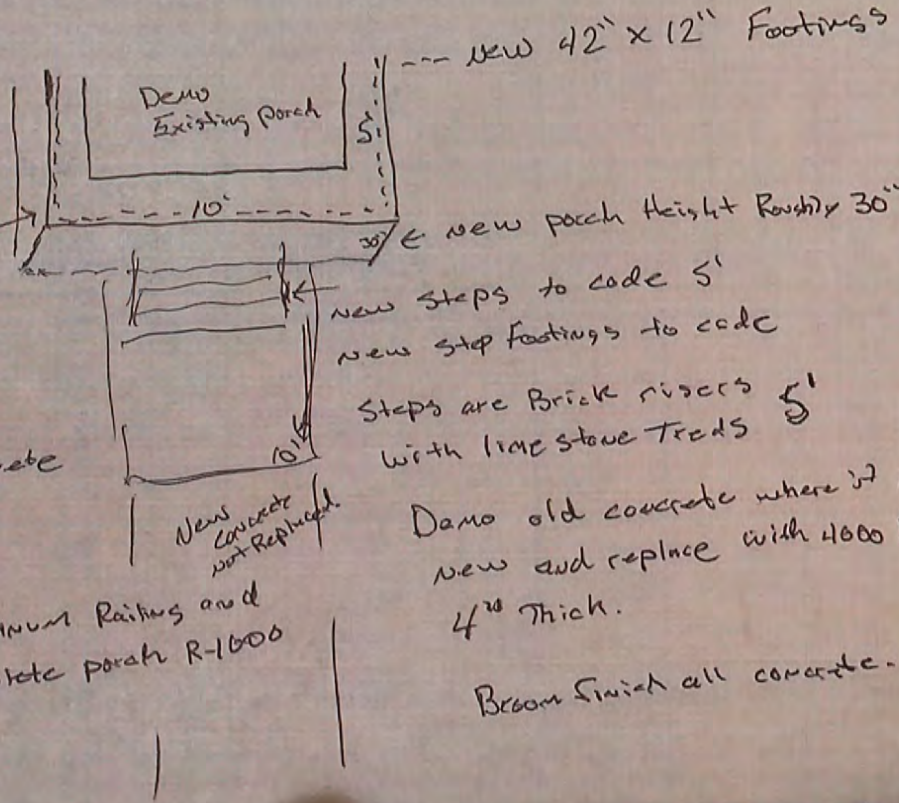 --- New 42" x 12" Footings
Demo
Existing porch
5'
10'
30"
← New porch Height Roughly 30"
New Steps to code 5'
New step footings to code
Steps are Brick risers 5'
with lime stone Treds
10'
New
Concrete
Not Replaced.
Demo old concrete where it
New and replace with 4000
4" Thick.
Railing and
porch R-1000
Broom Finish all concrete.